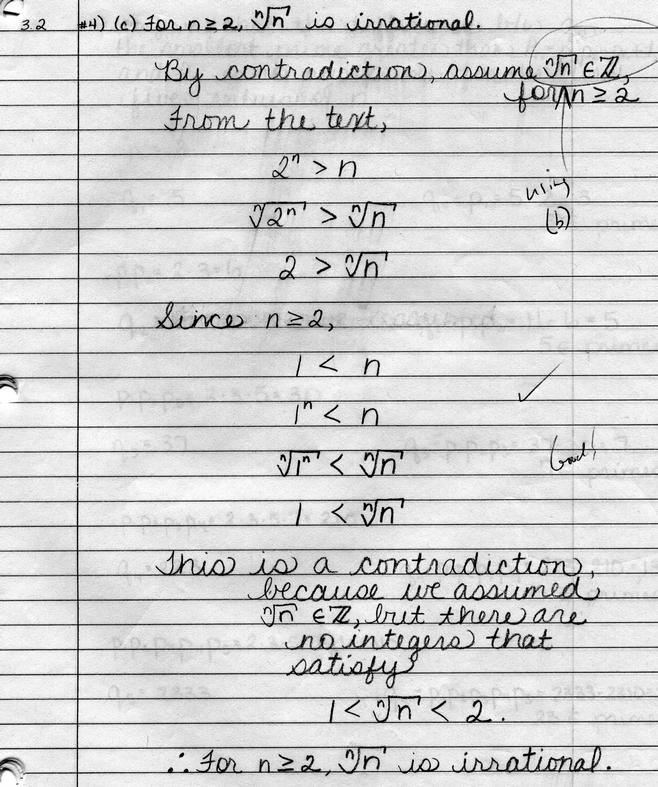 3.2 #4) (c) For n ≥ 2, ⁿ√n is irrational.
By contradiction, assume ⁿ√n ∈ ℤ,
for n ≥ 2
From the text,
2ⁿ > n
using
(b)
ⁿ√2ⁿ > ⁿ√n
2 > ⁿ√n
Since n ≥ 2,
1 < n
1ⁿ < n
✓
ⁿ√1ⁿ < ⁿ√n
Good!
1 < ⁿ√n
This is a contradiction,
because we assumed
ⁿ√n ∈ ℤ, but there are
no integers that
satisfy
1 < ⁿ√n < 2.
∴ For n ≥ 2, ⁿ√n is irrational.